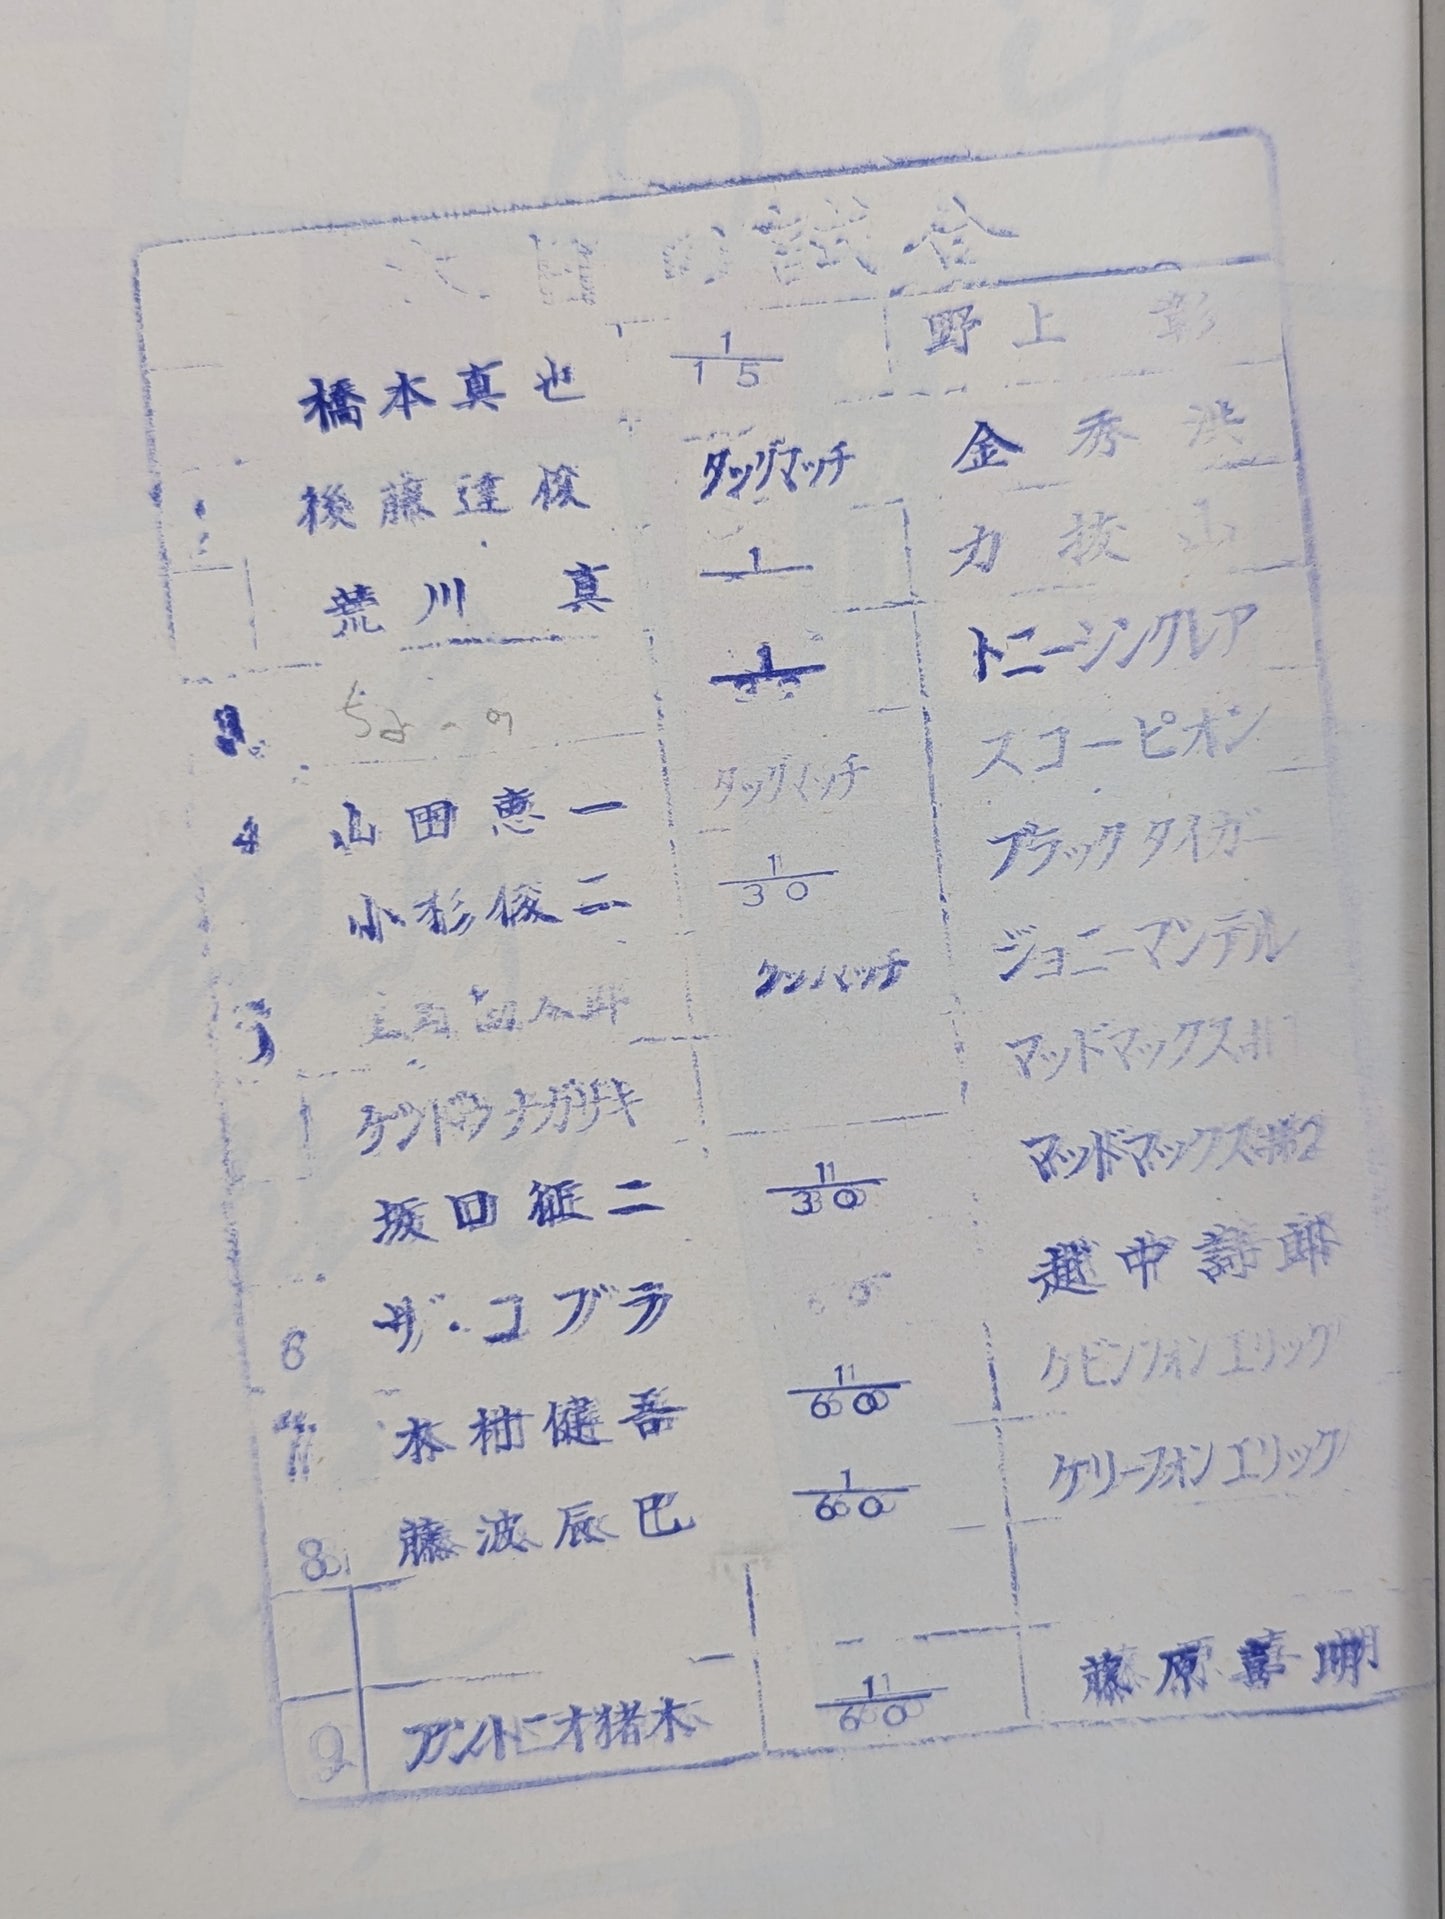 本日の試合
橋本真也 1/15 野上 彰
後藤達俊 タッグマッチ 金 秀洪
荒川 真 1 力抜山
1 トニーシンクレア
3 スコーピオン
4 山田恵一 タッグマッチ ブラックタイガー
小杉俊二 1/30 ジョニーマンテル
5 タッグマッチ
ケンドウナガサキ マッドマックス#1
坂口征二 1/30 マッドマックス#2
6 ザ・コブラ 越中詩郎
7 木村健吾 1/60 ケビンフォンエリック
8 藤波辰巳 1/60 ケリーフォンエリック
9 アントニオ猪木 1/60 藤原喜明